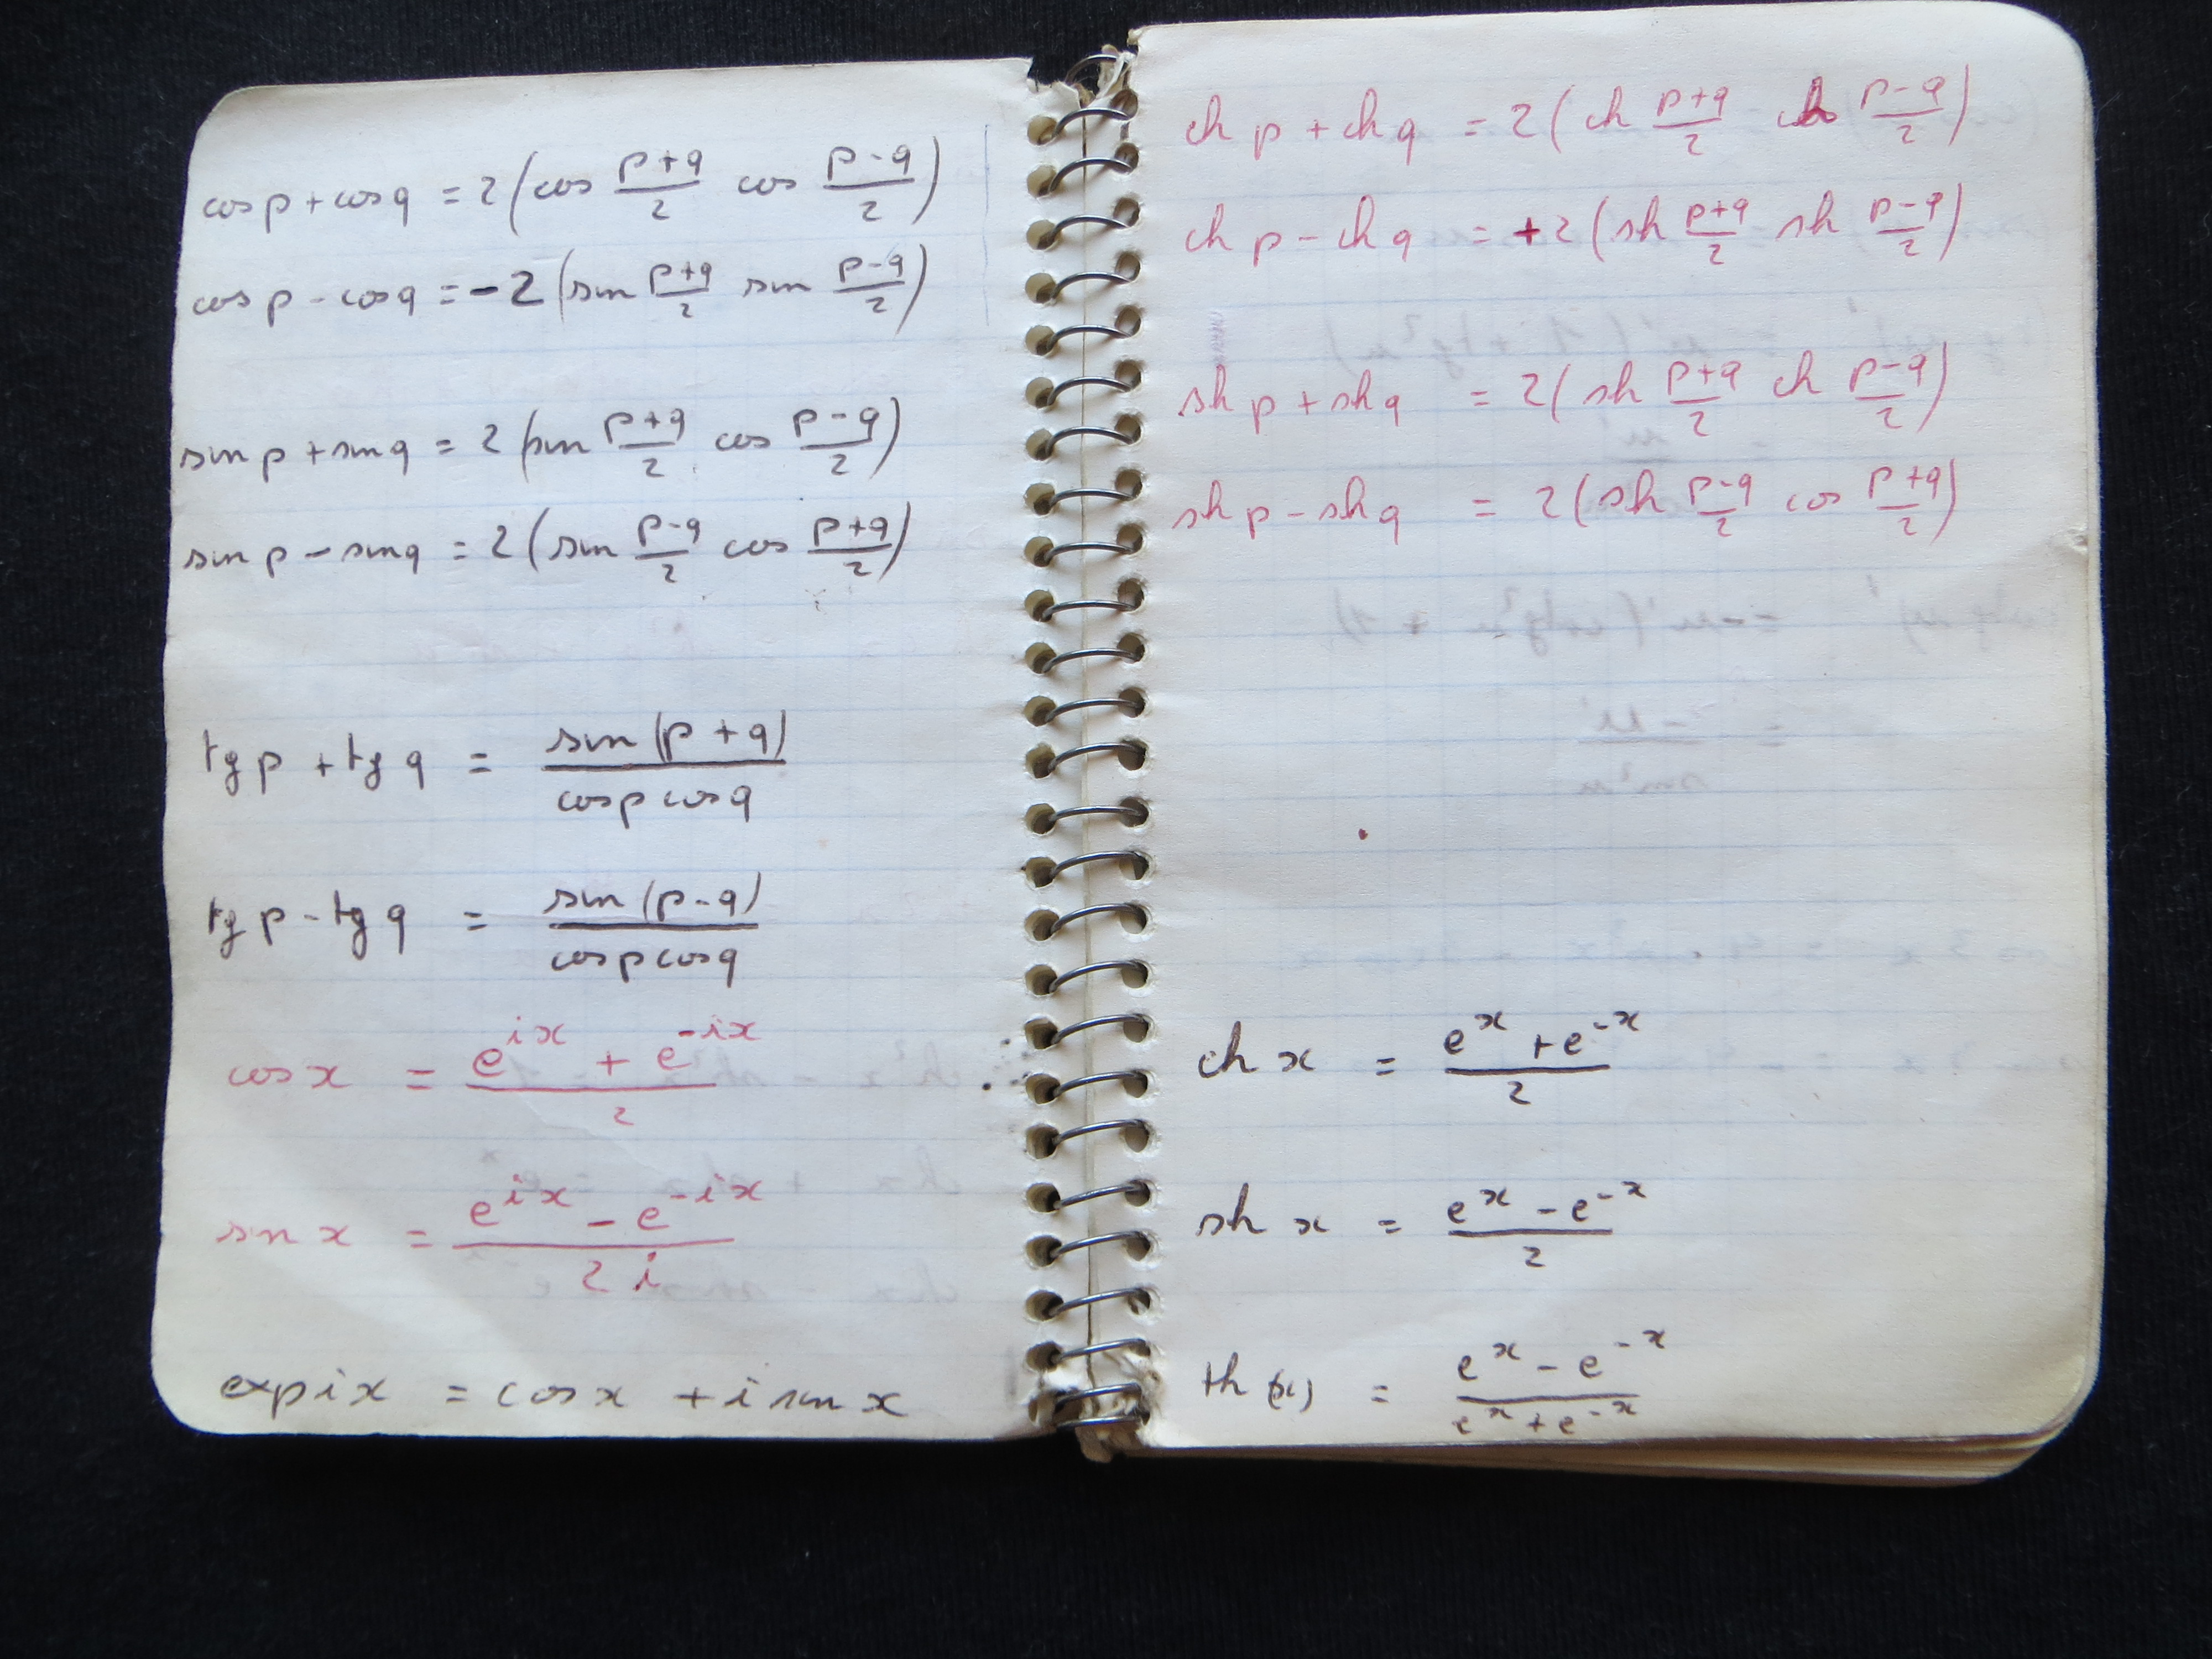 cos p + cos q = 2 (cos (p+q)/2 cos (p-q)/2)
cos p - cos q = -2 (sin (p+q)/2 sin (p-q)/2)
sin p + sin q = 2 (sin (p+q)/2 cos (p-q)/2)
sin p - sin q = 2 (sin (p-q)/2 cos (p+q)/2)
tg p + tg q = sin (p+q) / cos p cos q
tg p - tg q = sin (p-q) / cos p cos q
cos x = (e^ix + e^-ix) / 2
sin x = (e^ix - e^-ix) / 2i
exp ix = cos x + i sin x
ch p + ch q = 2 (ch (p+q)/2 ch (p-q)/2)
ch p - ch q = +2 (sh (p+q)/2 sh (p-q)/2)
sh p + sh q = 2 (sh (p+q)/2 ch (p-q)/2)
sh p - sh q = 2 (sh (p-q)/2 cos (p+q)/2)
ch x = (e^x + e^-x) / 2
sh x = (e^x - e^-x) / 2
th (x) = (e^x - e^-x) / (e^x + e^-x)